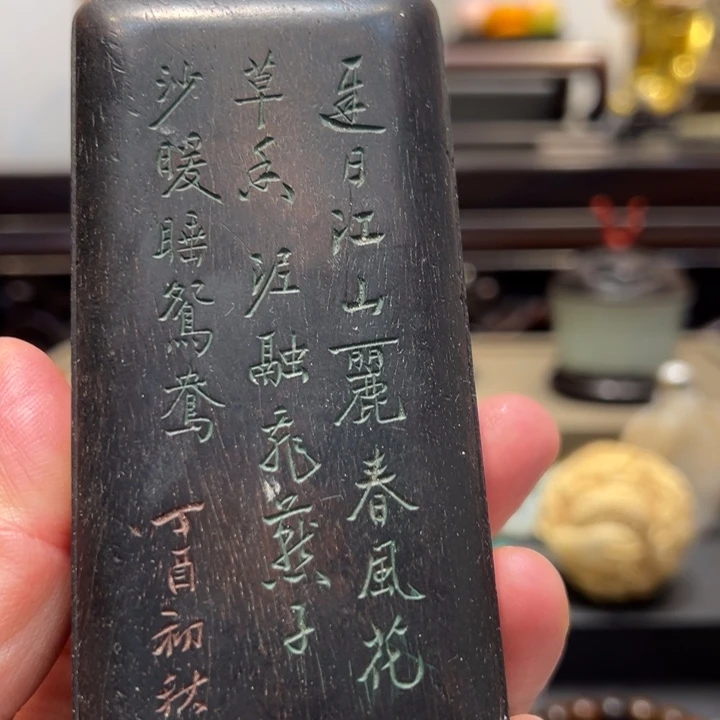 遲日江山麗春風花
草香泥融飛燕子
沙暖睡鴛鴦
丁酉初秋